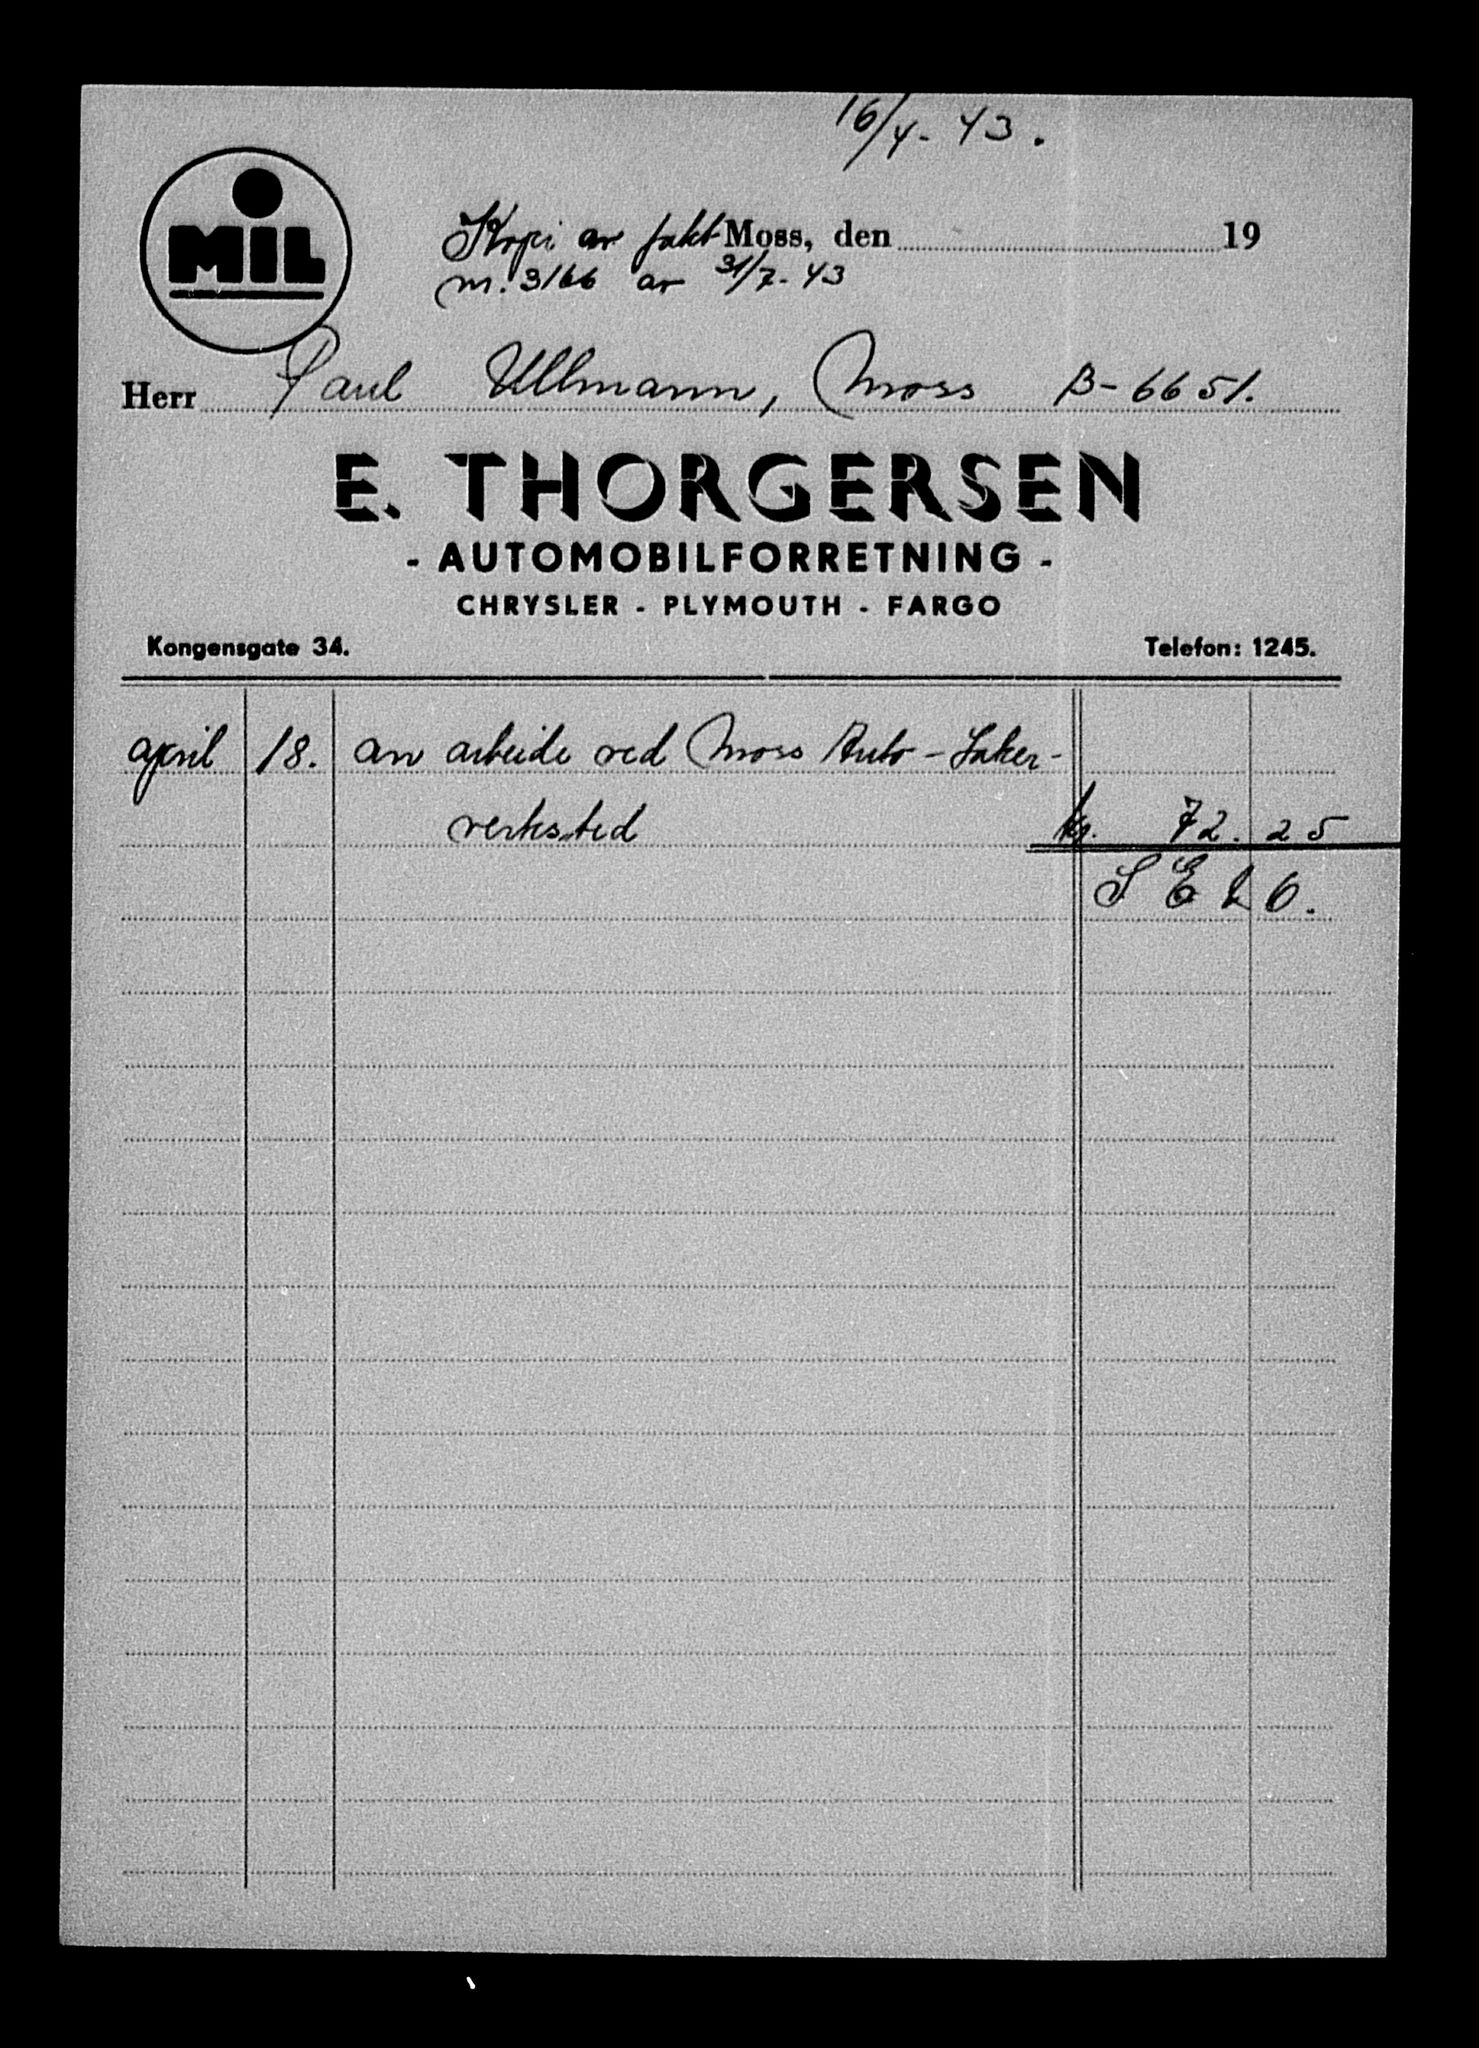 16/4-43.
MIL
Kopi av fakt Moss, den 19
nr. 3166 av 31/7-43
Herr Paul Ullmann, Moss B-6651.
E. THORGERSEN
- AUTOMOBILFORRETNING -
CHRYSLER - PLYMOUTH - FARGO
Kongensgate 34. Telefon: 1245.
april 18. an arbeide ved Moss Auto-Laker-
verksted kr. 72.25
S E & O.